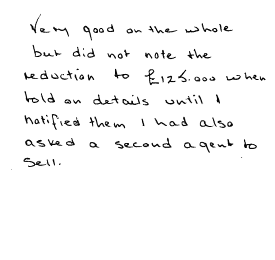 Very good on the whole
but did not note the
reduction to £125.000 when
told on details until I
notified them I had also
asked a second agent to
sell.